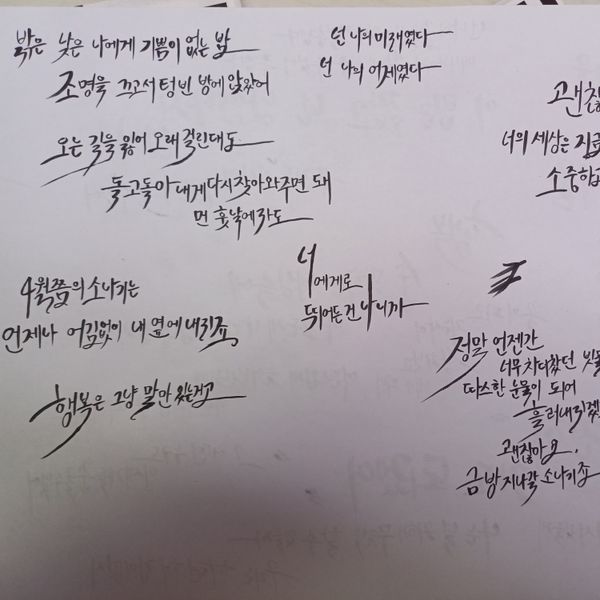 밝은 낮은 나에게 기쁨이 없는 밤
조명을 끄고서 텅 빈 방에 앉았어
오는 길을 잃어 오래 걸린대도
돌고돌아 내게 다시 찾아와주면 돼
먼 훗날에라도
넌 나의 미래였다
넌 나의 어제였다
너의 세상은
4월쯤의 소나기는
언제나 어김없이 내 옆에 내리죠
행복은 그냥 말만 있는거고
너
에게로
뛰어든건 나니까
정말 언젠간
너무 차디찼던
따스한 눈물이 되어
괜찮아요.
금방 지나갈 소나기죠